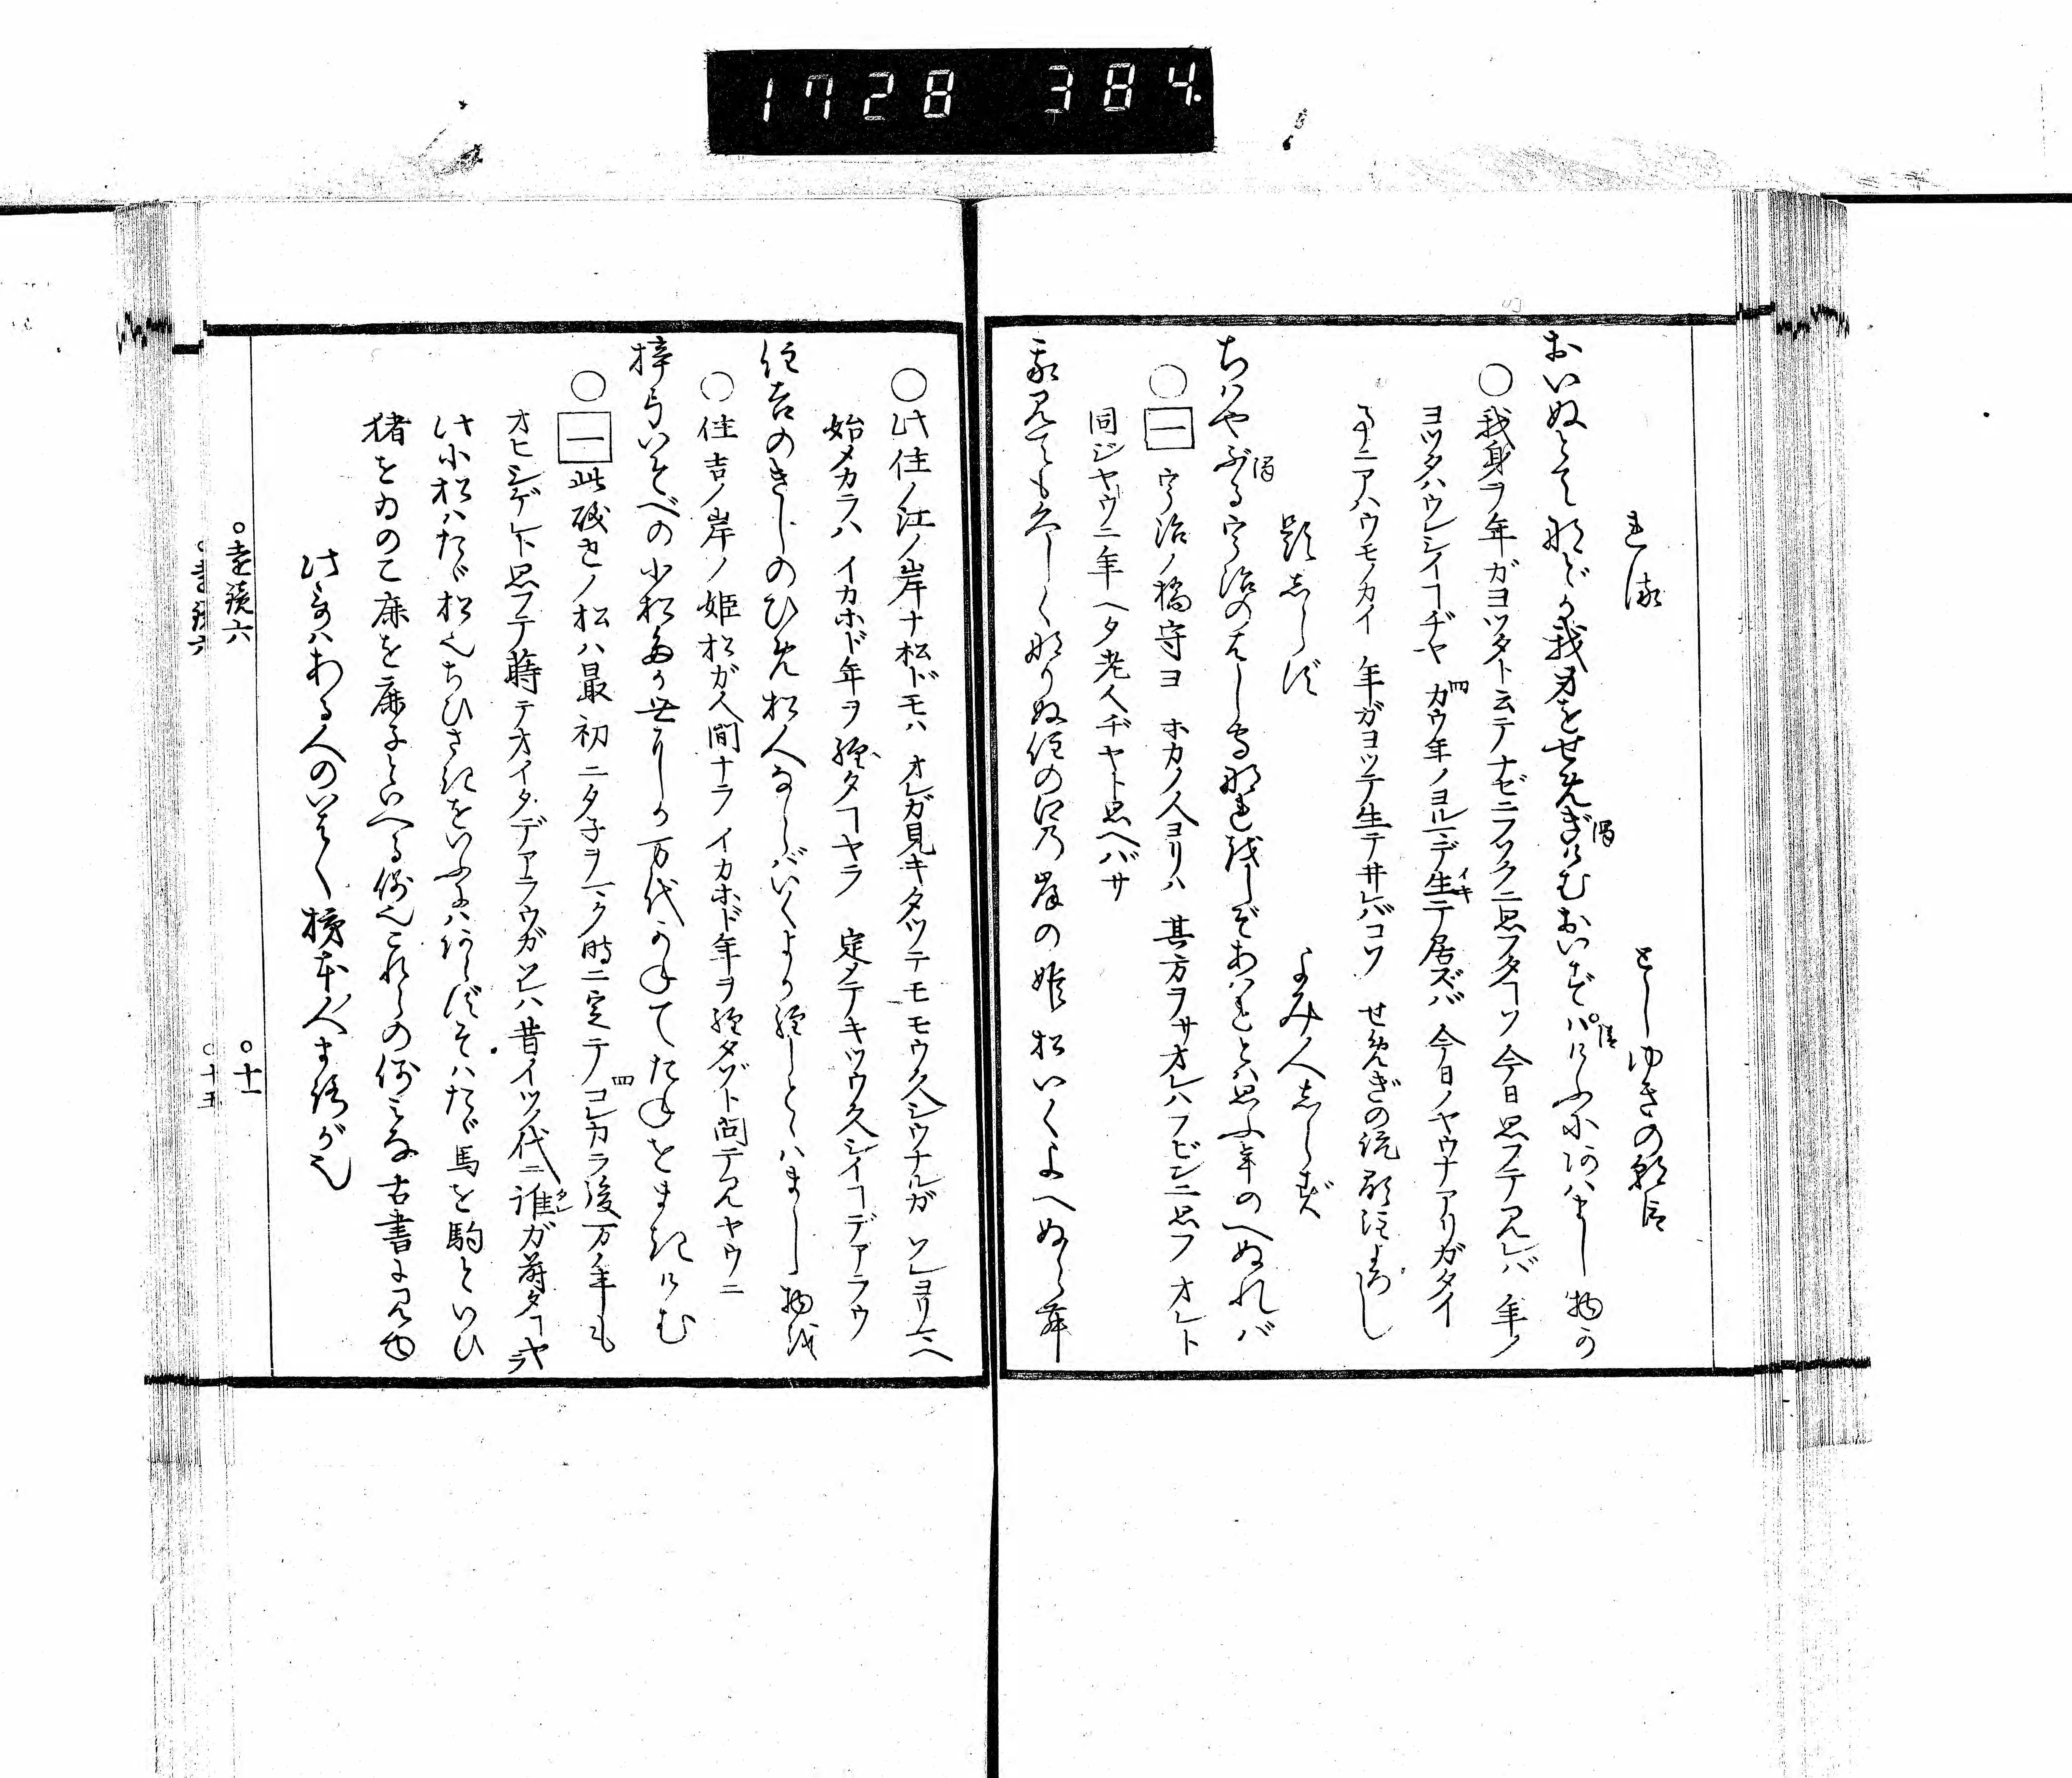 1728 384.
れば としゆきの朝臣
おいぬとて などか我身をせめきけむおいずはけふにあはまし物か
○我身ヲ年ガヨツタト云テナゼニフソクニ思フタコソ 今日思フテ見レバ 年ノ
ヨツタハウレシイコヂヤ カウ年ノヨルマデ生テ居ズバ 今日ノヤウナアリガタイ
事ニアハウモノカイ 年ガヨツテ生テヰレバコソ せめぎの説 餘注よろし
題しらず よみ人しらず
ちはやぶる宇治のはし守なれをしぞあはれとは思ふ年のへぬれば
○一 宇治ノ橋守ヨ ホカノ人ヨリハ 其方ヲサオレハフビンニ思フ オレト
同ジヤウニ年ヘタ老人ヂヤト思ヘバサ
我見ても久しくなりぬ住の江の岸の姫松いくよへぬらむ
○此住ノ江ノ岸ナ松ドモハ オレガ見キタツテモ モウ久シウナルガ ソレヨリマヘ
始メカラハ イカホド年ヲ經タコヤラ 定メテキツウ久シイコデアラウ
住吉のきしのひめ松人ならばいくよか經しととはまし物を
○住吉ノ岸ノ姫松ガ人間ナラ イカホド年ヲ經タゾト問テ見ヤウニ
梓弓いそべの小松たが世にか万代かねてたねをまきけむ
○一 此磯せノ松ハ最初ニタ子ヲマク時ニ定テ コレカラ後万ノ年も
オヒシゲレト思フテ蒔テオイタデアラウガ ソレハ昔イツノ代ニ誰ガ蒔タコヤラ
此小松はたゞ松也ちひさきをいふにはあらずそはたゞ馬を駒といひ
猪をゐのこ鹿を鹿子といへる例也これらの例みな古書に見ゆ
此哥はわる人のいはく 柿本人まろが也
○遠鏡六 ○十一
○遠鏡六 ○十五